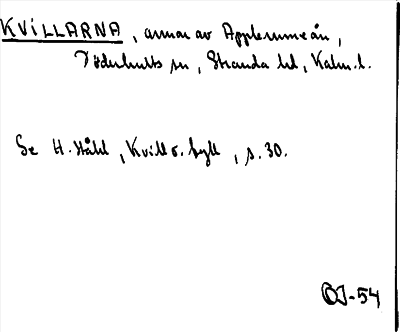 KVILLARNA, armar av Applerumeån,
Döderhults sn, Stranda hd, Kalm. l.
Se H. Ståhl, Kvill o. hyll, s. 30.
OJ-54